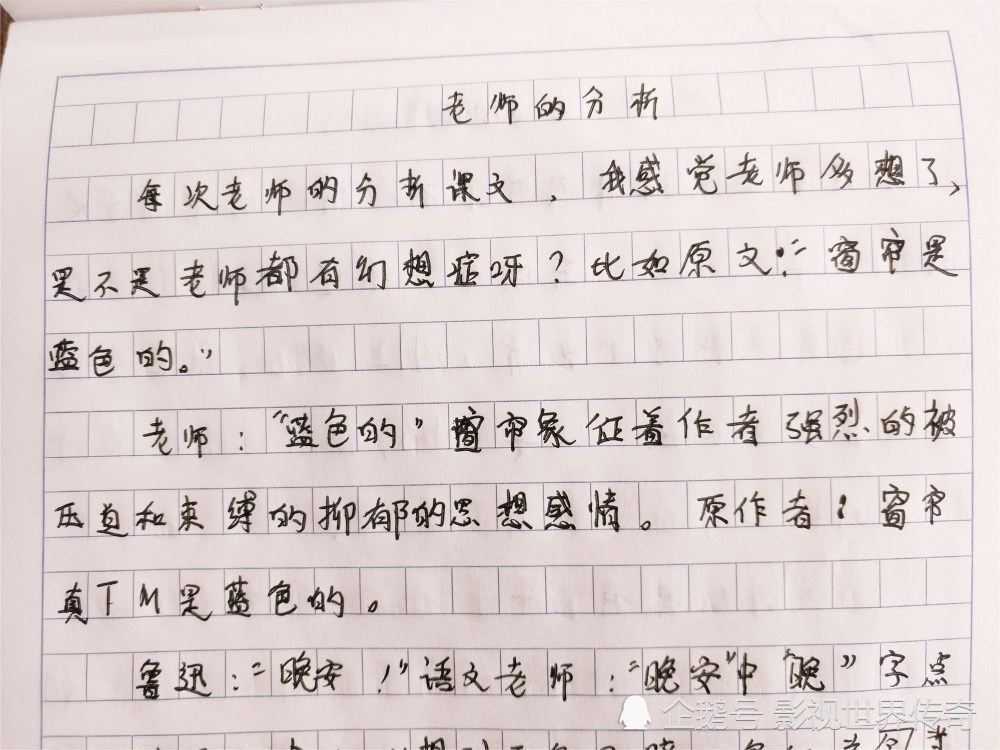 老师的分析
每次老师的分析课文，我感觉老师多想了，
是不是老师都有幻想症呀？比如原文：“窗帘是
蓝色的。”
老师：“蓝色的”窗帘象征着作者强烈的被
压迫和束缚的抑郁的思想感情。原作者：窗帘
真TM是蓝色的。
鲁迅：“晚安！”语文老师：“晚安”中“晚”字点
企鹅号 影视世界传奇